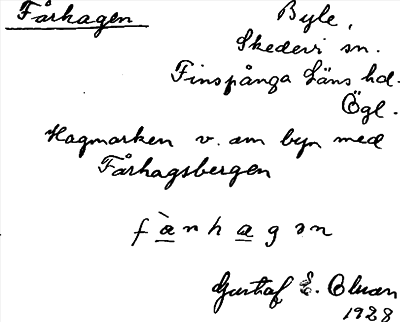 Fårhagen
Byle,
Skedevi sn.
Finspånga läns hd.
Ögl.
Hagmarken v. om byn med
Fårhagsbergen
fànhagən
Gustaf E.
1928